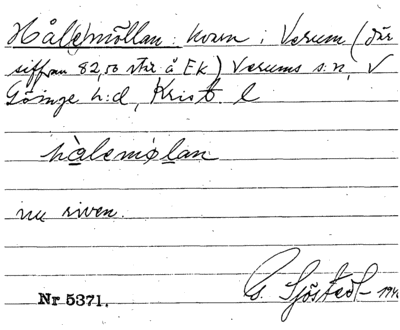 Hål(e)möllan: kvarn i Verum (där
siffran 82,50 står å Ek.) Verums s:n, V
Göinge h:d, Krist. l
hålemølan
nu riven.
G. Sjöstedt 194
Nr 5371.